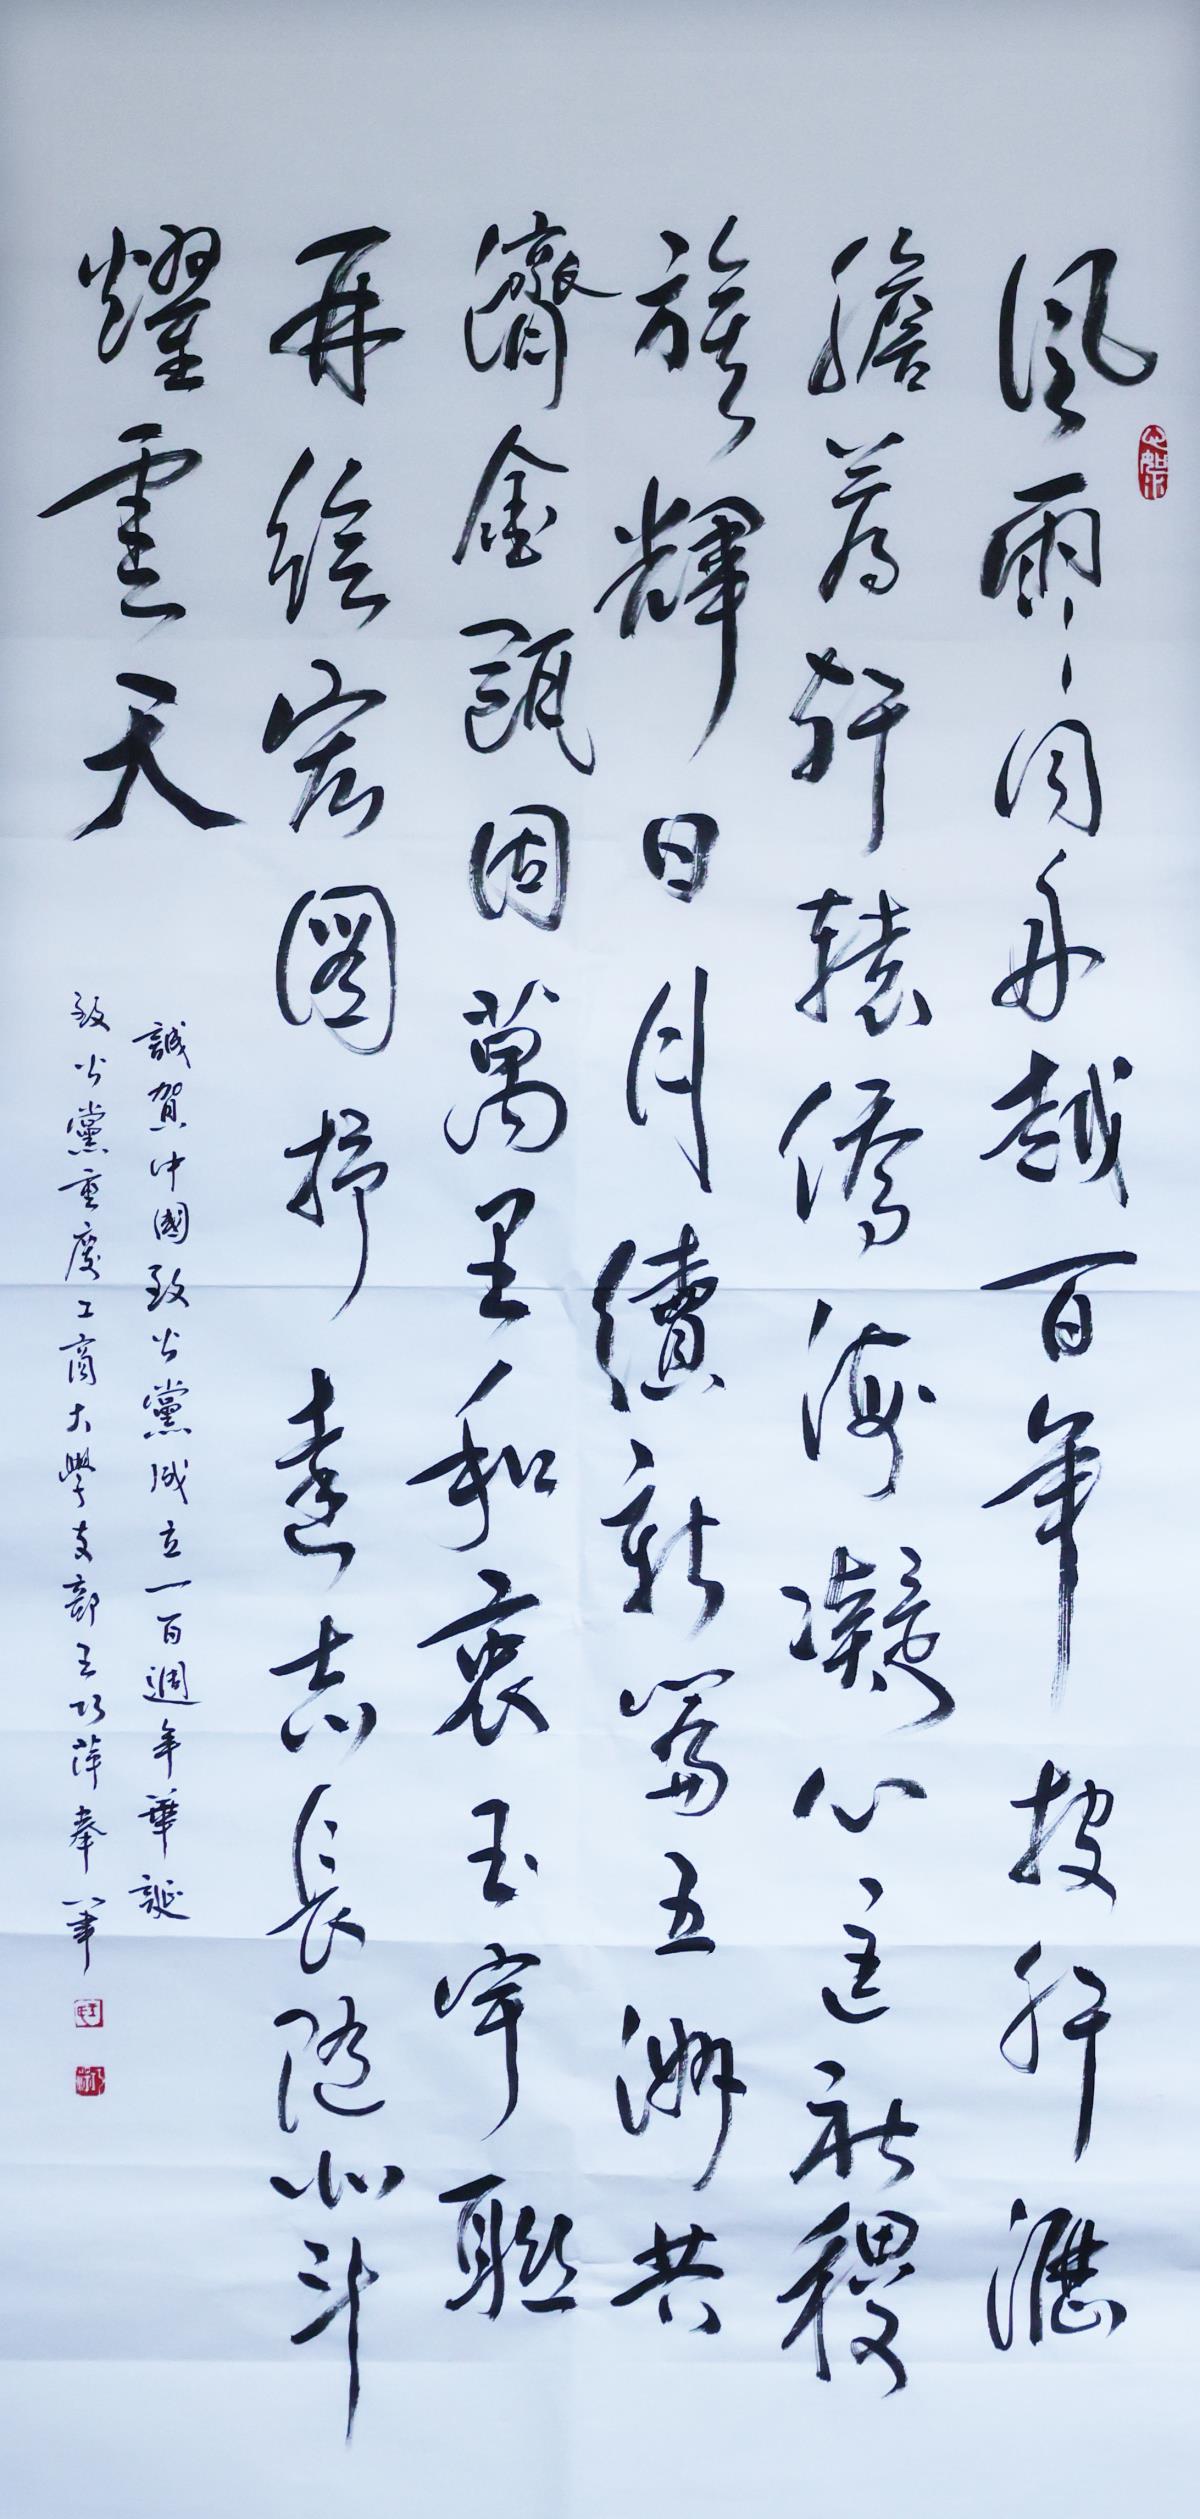 風雨同舟越百年披肝瀝
膽薦軒轅僑海凝心匡社稷
旌輝日月續新篇五洲共
濟金甌固萬里和衷玉宇聯
再繪宏圖抒遠志長隨北斗
耀雲天
誠賀中國致公黨成立一百週年華誕
致公黨重慶工商大學支部王巧萍奉筆